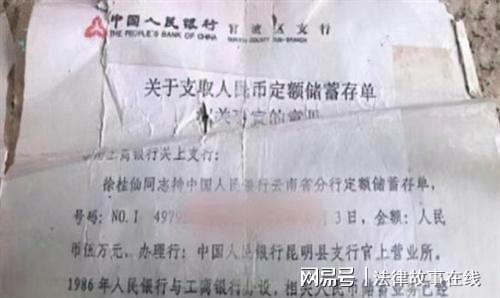 中国人民银行 官渡区支行
THE PEOPLE'S BANK OF CHINA
关于支取人民币定额储蓄存单
工商银行关上支行：
徐桂仙同志持中国人民银行云南省分行定额储蓄存单，
号码：NO.I 497 3日，金额：人民
币伍万元，办理行：中国人民银行昆明县支行官上营业所。
1986年人民银行与工商银行分设，相关人民币储蓄业务已经
网易号 | 法律故事在线